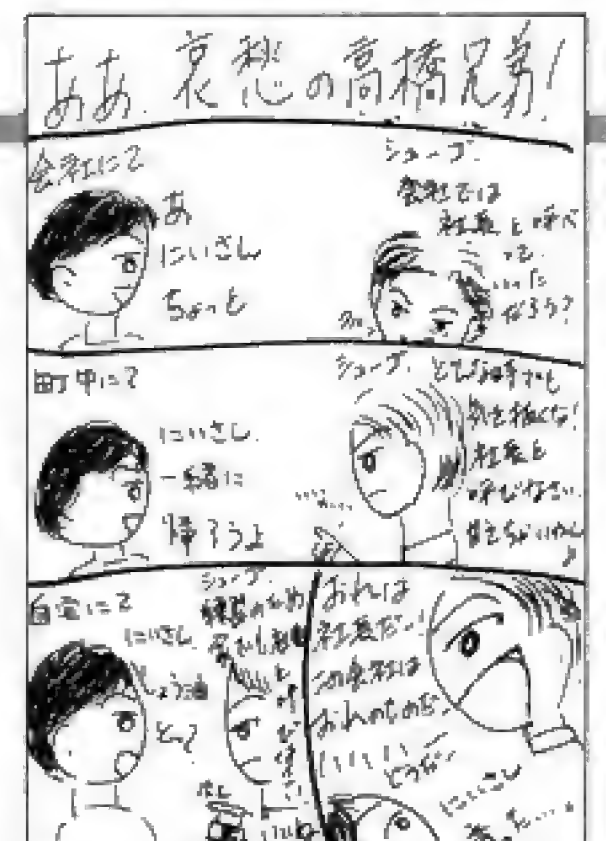 ああ、哀愁の高橋兄弟!
会社にて
あ
にいさん
ちょっと
シューゴ.
会社では
社長と呼べ
って
いった
だろう?
町中にて
にいさん.
一緒に
帰ろうよ
シューゴ.
どんな時でも
気を抜くな!
社長と
呼びなさい.
自宅にて
にいさん.
しょう油
とって
シューゴ.
と呼びなさい
おれは
社長だ!
この会社は
おれのものだ
どうだ
にいさん